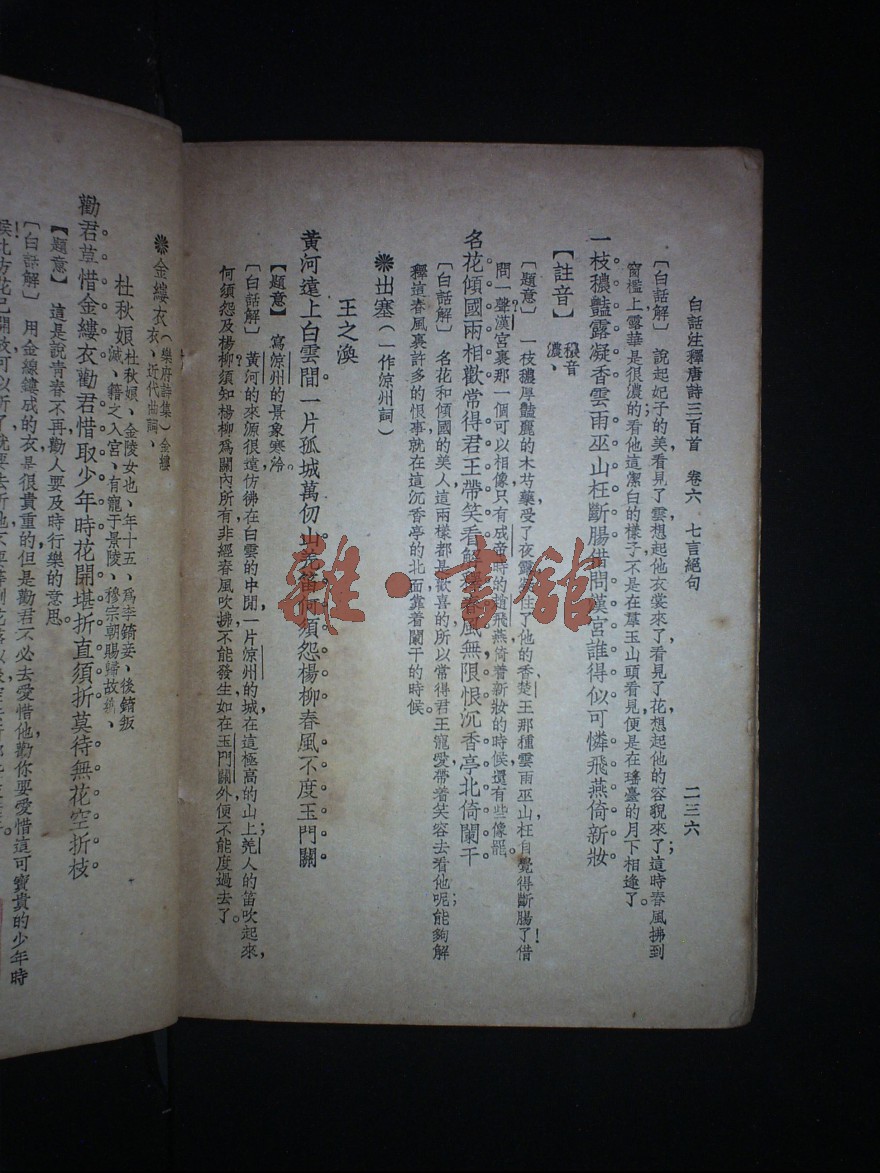 白話注釋唐詩三百首　卷六　七言絕句　二三六
〔白話解〕　說起妃子的美看見了雲想起他衣裳來了看見了花想起他的容貌來了；這時春風拂到
窗檻上露華是很濃的看他這潔白的樣子不是在羣玉山頭看見便是在瑤臺的月下相逢了。
一枝穠豔露凝香雲雨巫山枉斷腸借問漢宮誰得似可憐飛燕倚新妝
【註音】　穠音濃、
【題意】　一枝穠厚豔麗的木芍藥受了夜露凝住了他的香楚王那種雲雨巫山枉自覺得斷腸了！借
問一聲漢宮裏那一個可以相像？只有成帝時的趙飛燕倚着新妝的時候還有些像罷。
名花傾國兩相歡常得君王帶笑看解釋春風無限恨沉香亭北倚闌干
〔白話解〕　名花和傾國的美人這兩樣都是歡喜的所以常得君王寵愛帶着笑容去看他呢；能夠解
釋這春風裏許多的恨事就在這沉香亭的北面靠着闌干的時候。
❋出塞（一作涼州詞）
王之渙
黃河遠上白雲間一片孤城萬仞山羌笛何須怨楊柳春風不度玉門關
【題意】　寫涼州的景象寒冷。
〔白話解〕　黃河的來源很遠仿彿在白雲的中間一片涼州的城在這極高的山上；羌人的笛吹起來，
何須怨及楊柳須知楊柳爲關內所有非經春風吹拂不能發生如在玉門關外便不能度過去了。
❋金縷衣（樂府詩集）金縷衣、近代曲詞、
杜秋娘　杜秋娘、金陵女也、年十五、爲李錡妾、後錡叛滅、籍之入宮、有寵于景陵、穆宗朝賜歸故鄉、
勸君莫惜金縷衣勸君惜取少年時花開堪折直須折莫待無花空折枝
【題意】　這是說青春不再勸人要及時行樂的意思。
〔白話解〕　用金線縷成的衣是很貴重的但是勸君不必去愛惜他勸你要愛惜這可寶貴的少年時
雜·書館